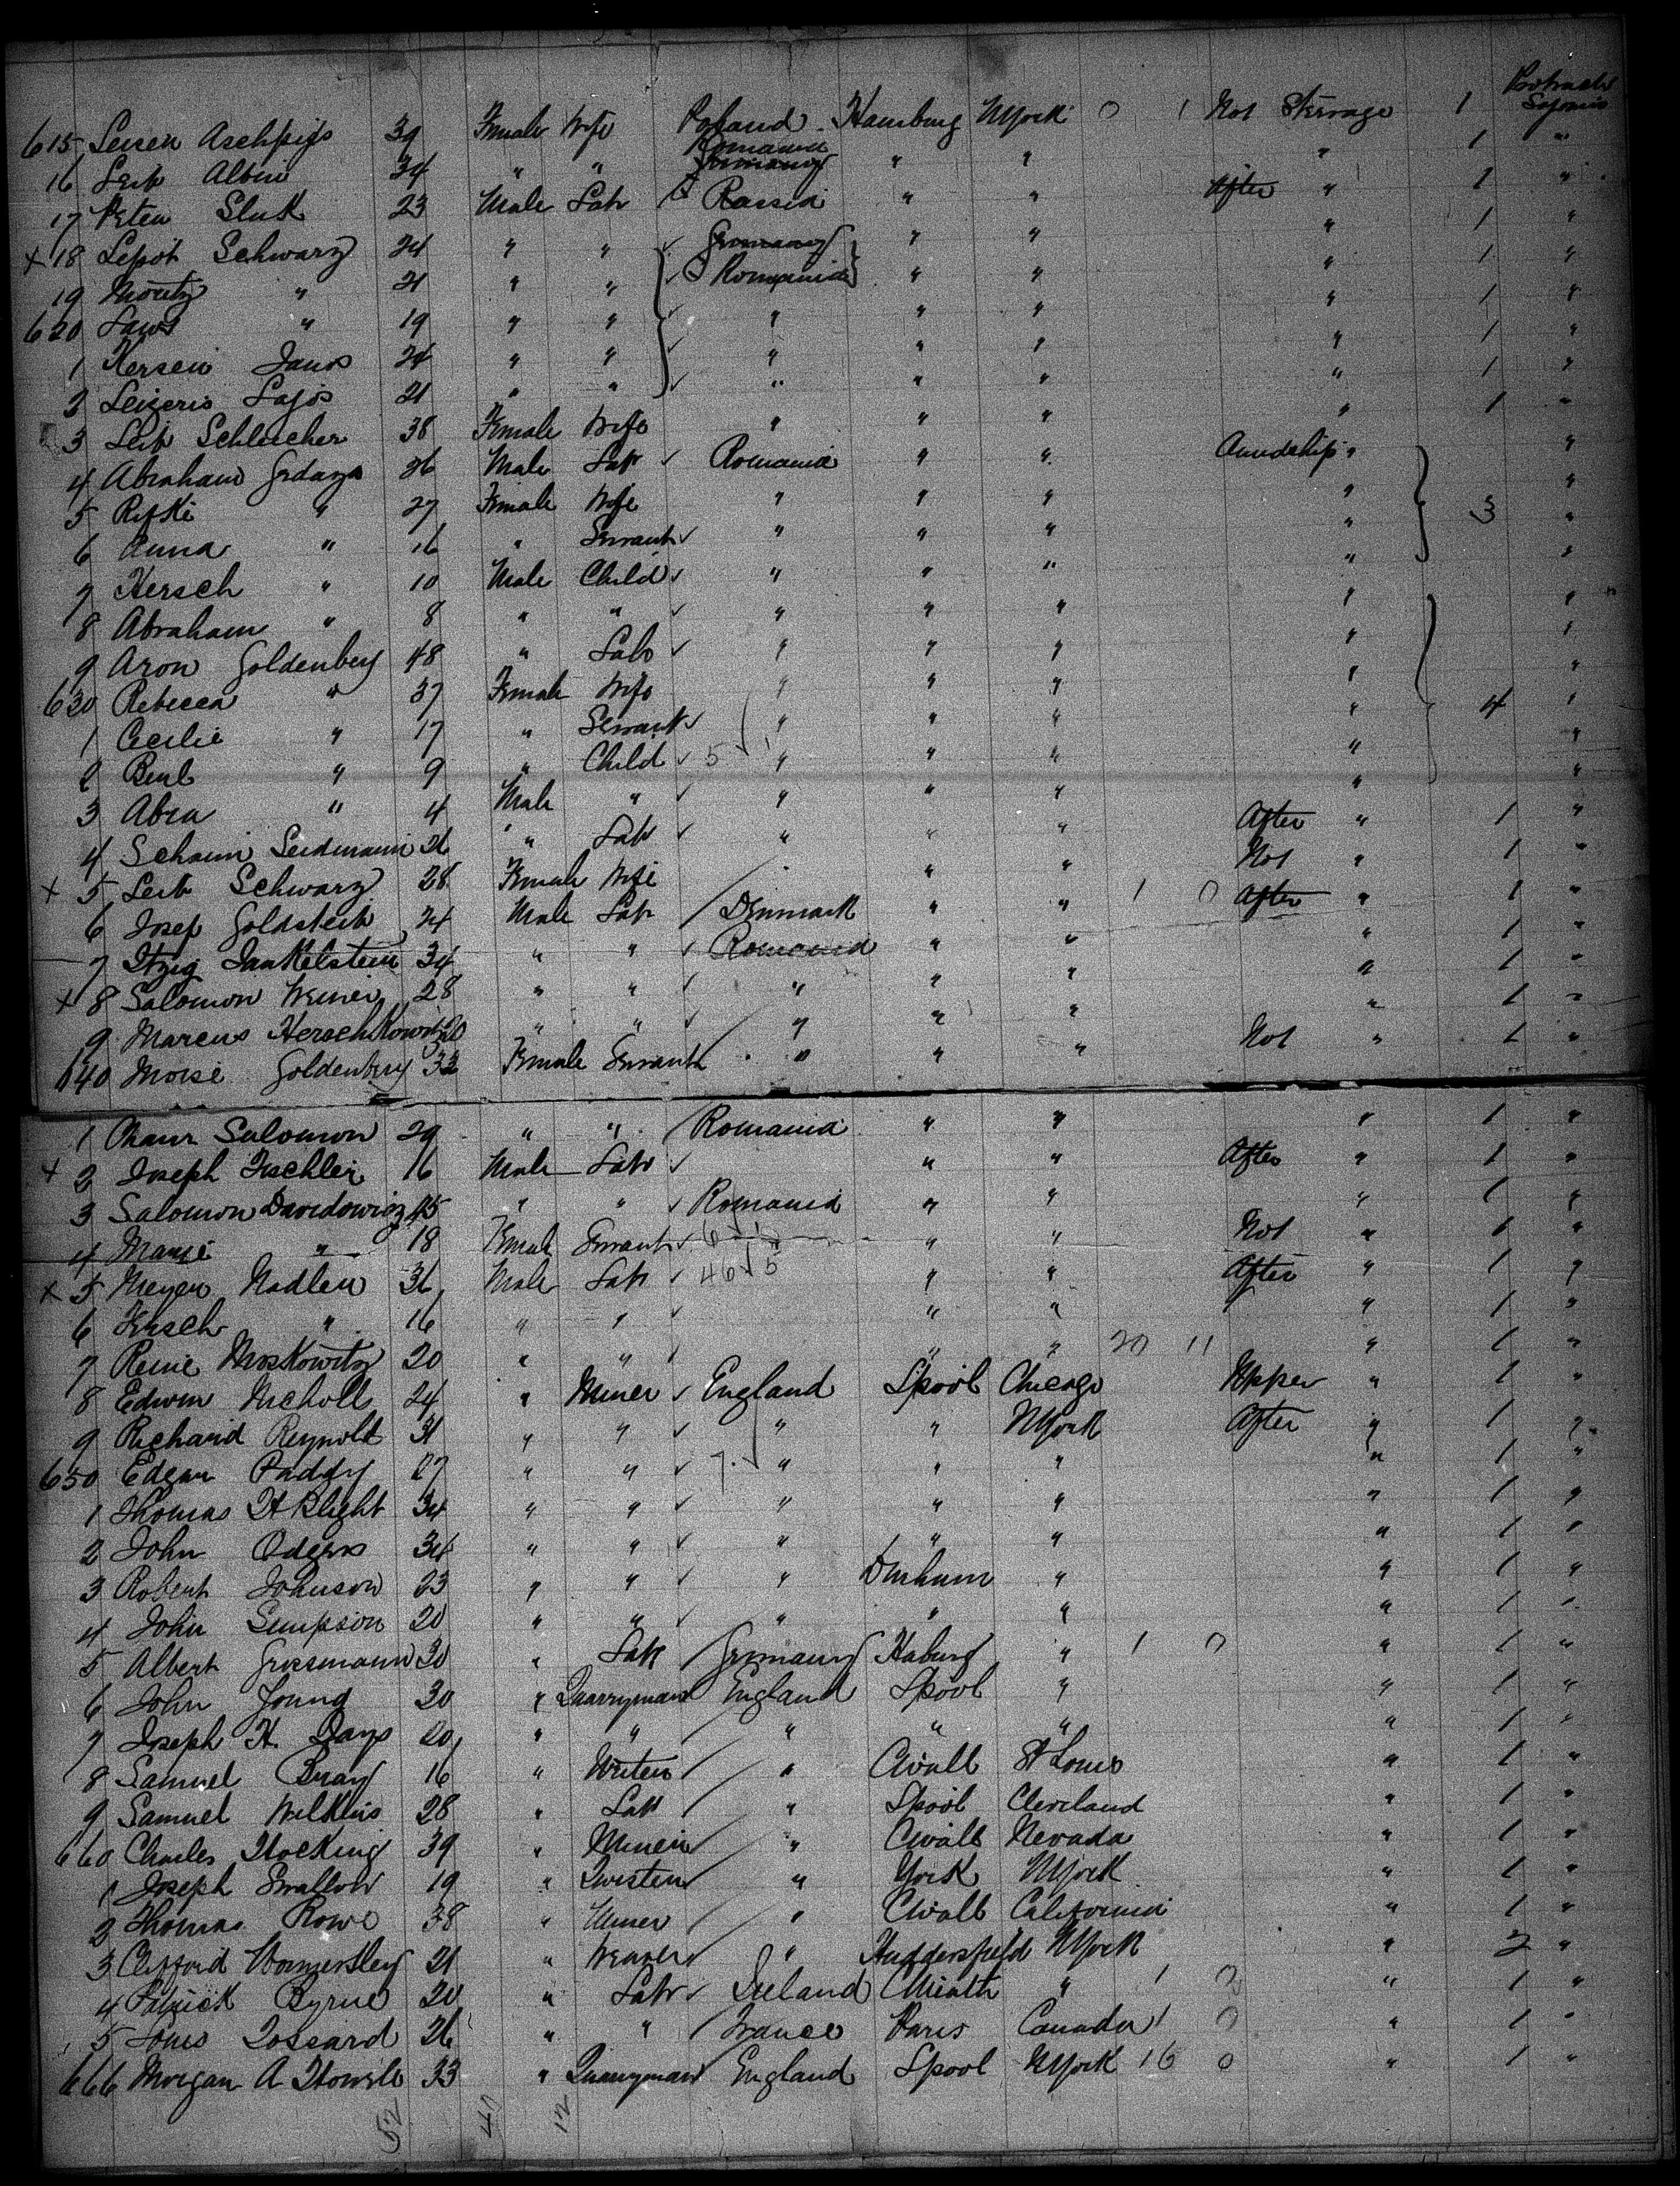 Protracted Sojourn
615 Leisen Aschpigs 39 Female Wife Poland Hamburg NYork 0 1 Not Steerage 1
16 Leib Albin 34 " " Romania Germany " " " 1 "
17 Peter Sluk 23 Male Labr Russia " " After " 1 "
x 18 Lepot Schwarz 24 " " Germany " " " 1 "
19 Moritz " 21 " " Romania " " " 1 "
620 " 19 " " " " " " 1 "
1 Hersein Janos 24 " " " " " " 1 "
2 Leizeris Lajos 21 " " " " " " 1 "
3 Leib Schleicher 38 Female Wife " " " " 1 "
4 Abraham 26 Male Labr Romania " " Amidships " "
5 Rifki " 27 Female Wife " " " " 3 "
6 Anna " 16 " Servant " " " " "
7 Hersch " 10 Male Child " " " " "
8 Abraham " 8 " " " " " " "
9 Aron Goldenberg 48 " Labr " " " " "
630 Rebecca " 37 Female Wife " " " " "
1 Cecilie " 17 " Servant " " " " 4 "
2 " 9 " Child 5 1 " " " " "
3 Abra " 4 Male " " " " " "
4 Schaim Seidmann 26 " Labr " " " After " 1 "
x 5 Leib Schwarz 28 Female Wife " " " Not " 1 "
6 Josef Goldstein 24 Male Labr Denmark " " 1 0 After " 1 "
7 Itzig Jankelstein 34 " " Romania " " " 1 "
x 8 Salomon Weiner 28 " " " " " " 1 "
9 Marcus Herschkowitz 20 " " " " " " 1 "
640 Moise Goldenberg 33 Female Servant " " " Not " 1 "
1 Salomon 29 " " Romania " " " 1 "
x 2 Joseph Fischler 16 Male Labr " " After " 1 "
3 Salomon Davidowicz 45 " " Romania " " " 1 "
4 " 18 Female Servant 6 1 " " " Not " 1 "
x 5 Meyer Nadler 36 Male Labr 46 5 " " After " 1 "
6 Hersch " 16 " " " " " 1 "
7 Moskowitz 20 " " " " 20 11 " 1 "
8 Edwin Nicholl 24 " Miner England Lpool Chicago Upper " 1 "
9 Richard Reynold 31 " " " " NYork After " 1 "
650 Edgar Paddy 27 " " 7 " " " " 1 "
1 Thomas H Blight 34 " " " " " " 1 "
2 John Odgers 34 " " " " " " 1 "
3 Robert Johnson 23 " " " Durham " " 1 "
4 John Simpson 20 " " " " " " 1 "
5 Albert Grossmann 30 " Labr Germany Haburg " 1 0 " 1 "
6 John Jound 30 " Quarryman England Lpool " " 1 "
7 Joseph H. Days 20 " " " " " " 1 "
8 Samuel Bray 16 " Writer " Cwall St Louis " 1 "
9 Samuel Wilkins 28 " Labr " Lpool Cleveland " 1 "
660 Charles Hocking 39 " Miner " Cwall Nevada " 1 "
1 Joseph Swallow 19 " Twister " York NYork " 1 "
2 Thomas Rowe 38 " Miner " Cwall California " 1 "
3 Clifford Womersley 21 " Weaver " Huddersfield NYork " 2 "
4 Patrick Byrne 20 " Labr Ireland CMeath " 1 0 " 1 "
5 Louis Tossard 26 " " France Paris Canada 1 0 " 1 "
666 Morgan A Howell 33 " Quarryman England Lpool NYork 16 0 " 1 "
52 40 12